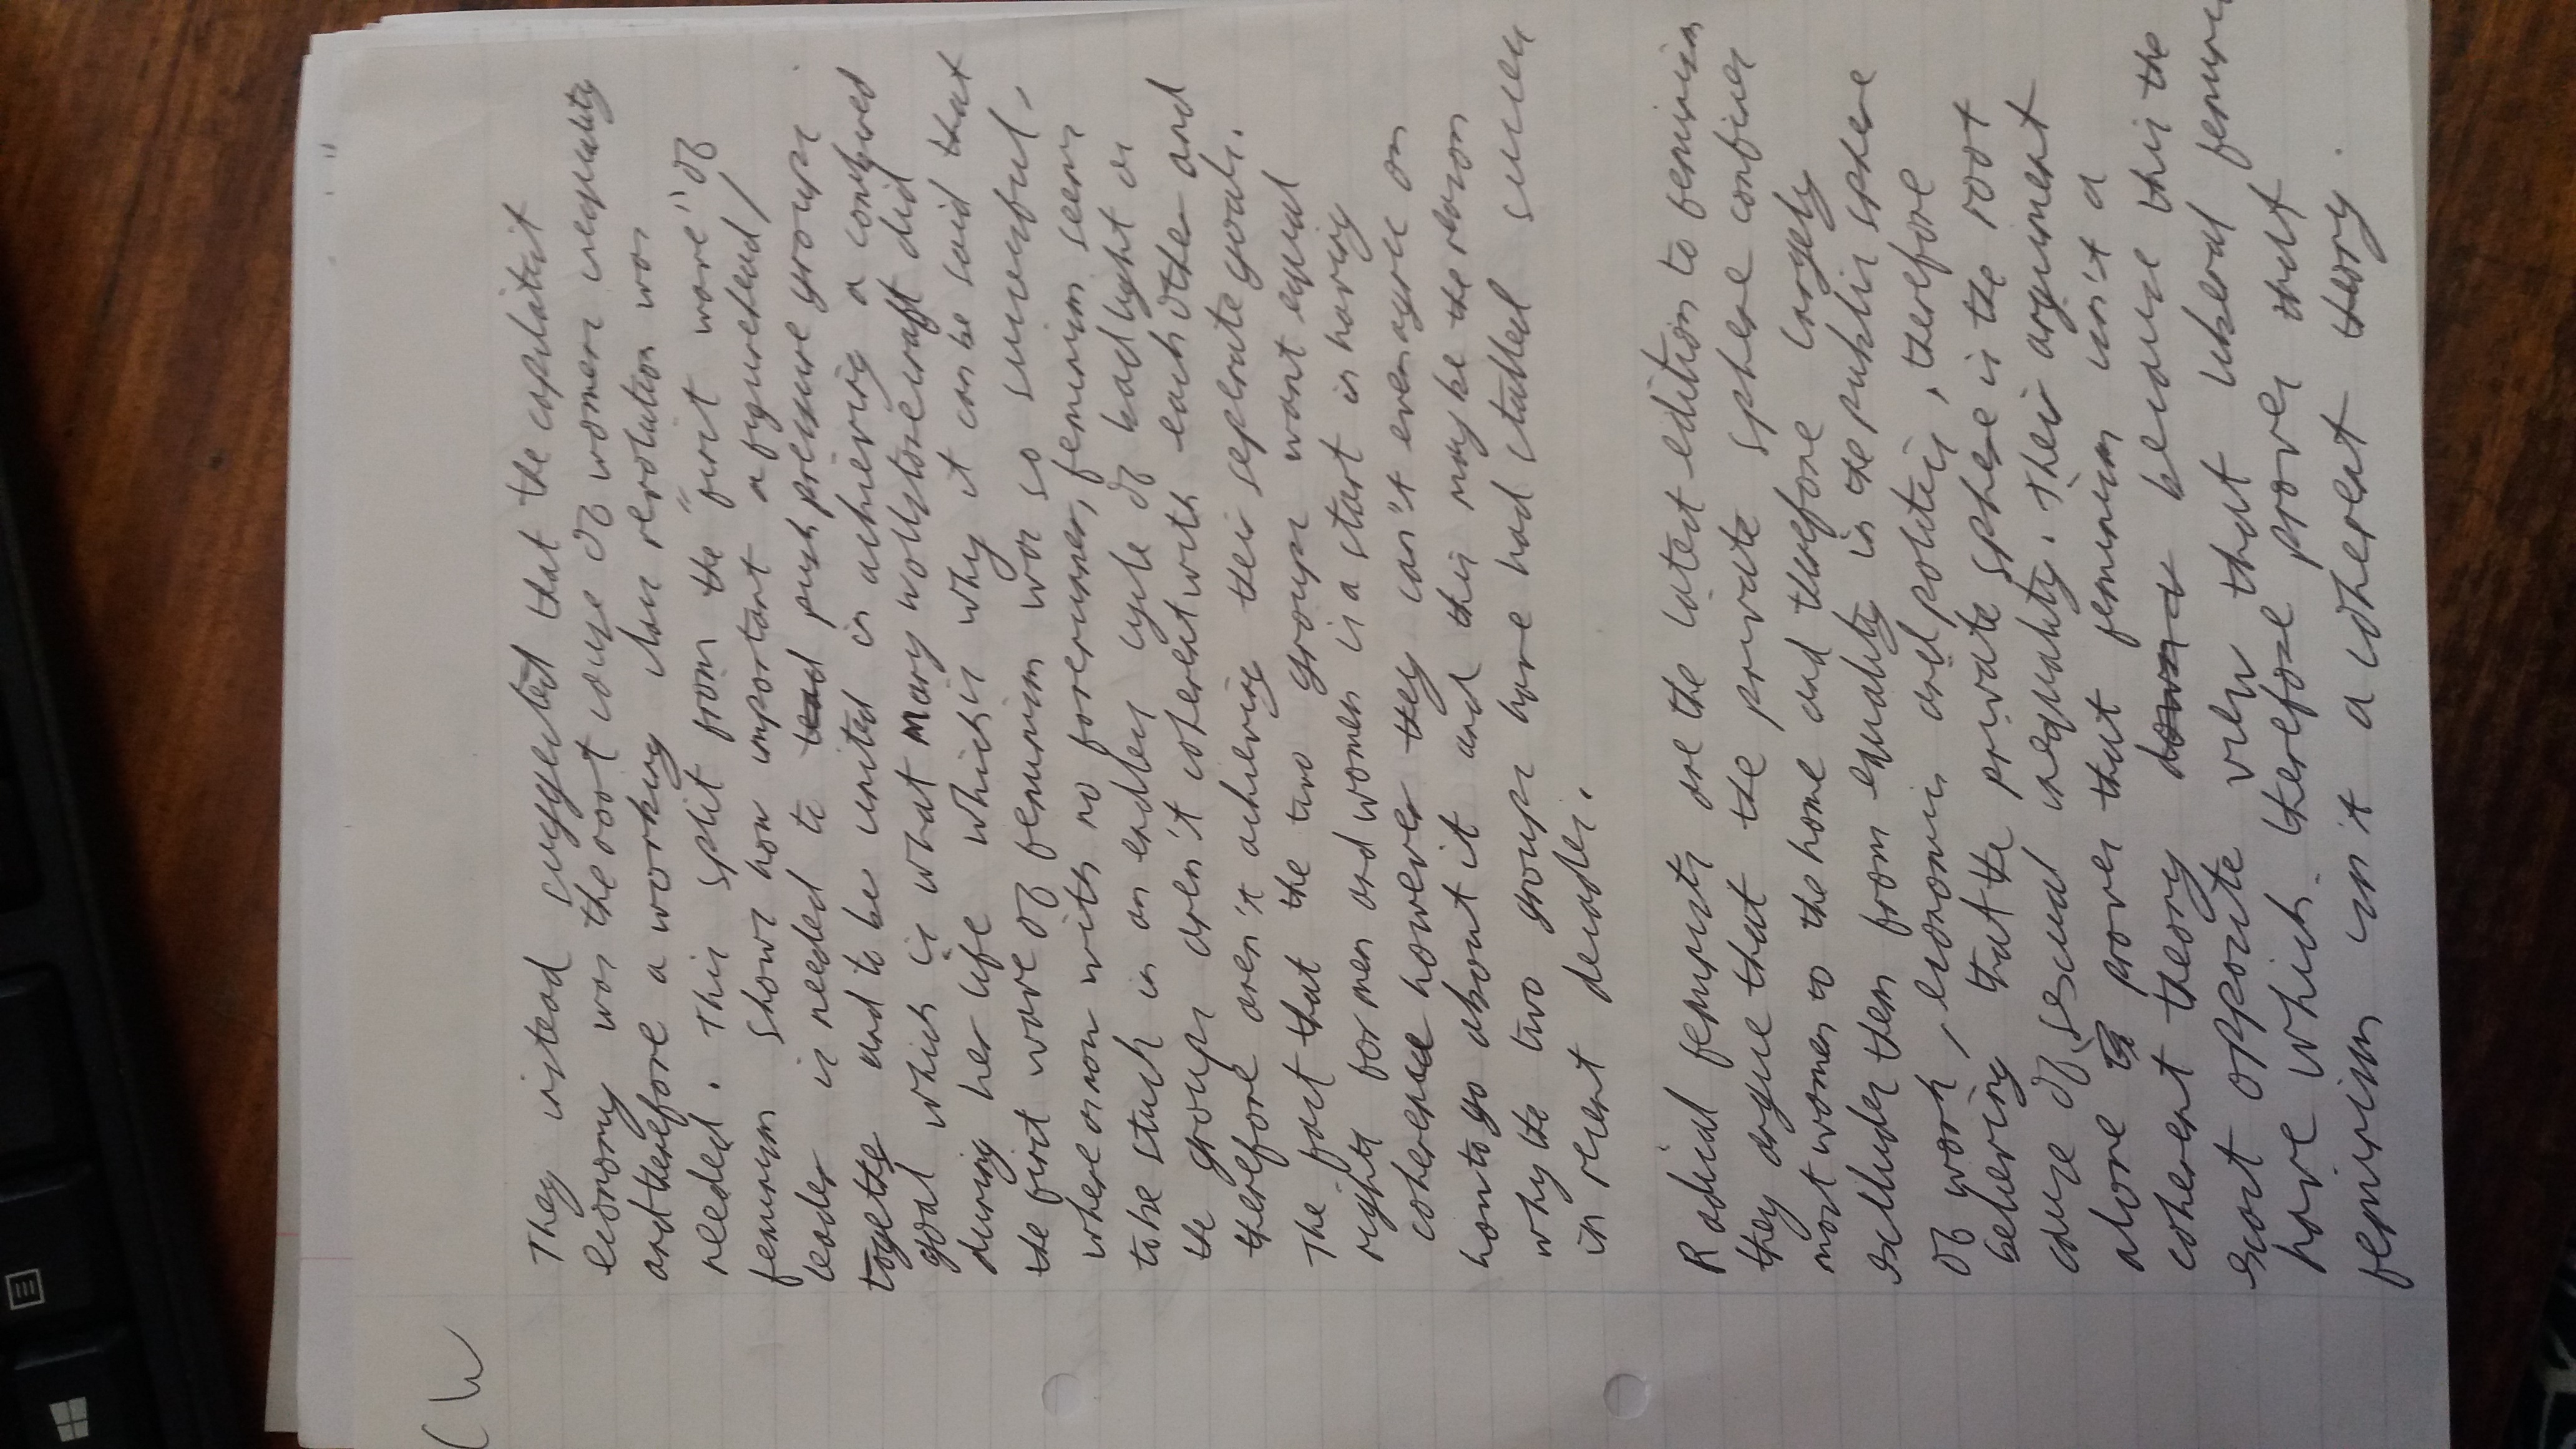 CW
They instead suggested that the capilatist
economy was the root cause of women inequality
and therefore a working class revolution was
needed. This split from the "first wave" of
femism shows how important a figurehead/
leader is needed to lead push pressure groups
together and to be united in achieving a conbined
goal which is what Mary wollstonecraft did
during her life which is why it can be said that
the first wave of feminism was so successful,
where as now with no forerunner, feminism seems
to be stuck in an endless cycle of bad light as
the groups aren't coherent with each other and
therefore aren't achieving their seperate goals.
The fact that the two groups want equal
rights for men and women is a start in having
coherence however they can't even agree on
how to go about it and this may be the reason
why the two groups have had stalled success
in recent decades.
Radical femists are the latest edition to feminism
they argue that the private sphere confines
most women to the home and therefore largely
excludes them from equality in the public sphere
of work, economic and politics, therefore
believing that the private sphere is the root
cause of sexual inequality. Their arguement
alone proves that feminism isn't a
coherent theory because this the
exact opposite view that liberal femini
have which therefore proves that
feminism isn't a coherent theory.